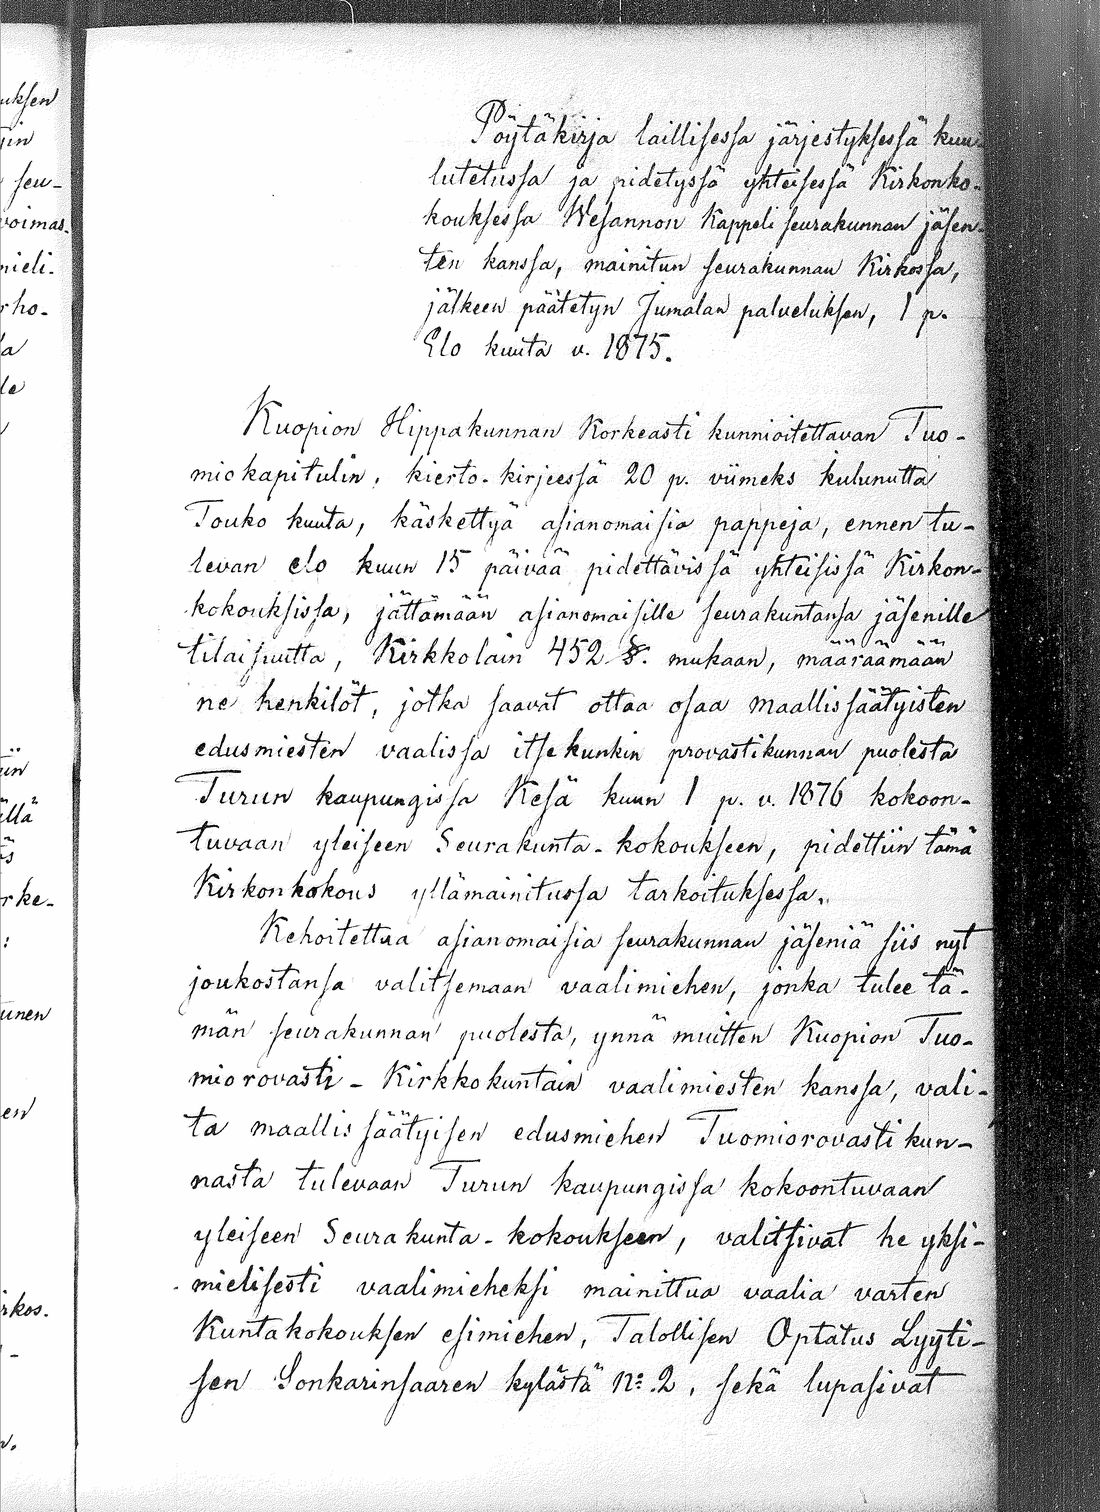 Pöytäkirja laillisessa järjestyksessä kuu-
lutetussa ja pidetyssä yhteisessä Kirkonko-
kouksessa Wesannon Kappeli seurakunnan jäsen-
ten kanssa, mainitun seurakunnan Kirkossa,
jälkeen päätetyn Jumalan palveluksen, 1 p.
Elo kuuta v. 1875.
Kuopion Hippakunnan Korkeasti kunnioitettavan Tuo-
miokapitulin, kierto-kirjeessä 20 p. viimeks kulunutta
Touko kuuta, käskettyä asianomaisia pappeja, ennen tu-
levan elo kuun 15 päivää pidettävissä yhteisissä Kirkon-
kokouksissa, jättämään asianomaisille seurakuntansa jäsenille
tilaisuutta, Kirkkolain 452 §. mukaan, määräämään
ne henkilöt, jotka saavat ottaa osaa maallissäätyisten
edusmiesten vaalissa itsekunkin provastikunnan puolesta
Turun kaupungissa Kesä kuun 1 p. v. 1876 kokoon-
tuvaan yleiseen Seurakunta-kokoukseen, pidettiin tämä
Kirkonkokous yllämainitussa tarkoituksessa.
Kehoitettua asianomaisia seurakunnan jäseniä siis nyt
joukostansa valitsemaan vaalimiehen, jonka tulee tä-
män seurakunnan puolesta, ynnä muitten Kuopion Tuo-
miorovasti-Kirkkokuntain vaalimiesten kanssa, vali-
ta maallis säätyisen edusmiehen Tuomiorovasti kun-
nasta tulevaan Turun kaupungissa kokoontuvaan
yleiseen Seurakunta-kokoukseen, valitsivat he yksi-
mielisesti vaalimieheksi mainittua vaalia varten
Kuntakokouksen esimiehen, Talollisen Optatus Lyyti-
sen Sonkarinsaaren kylästä No 2, sekä lupasivat